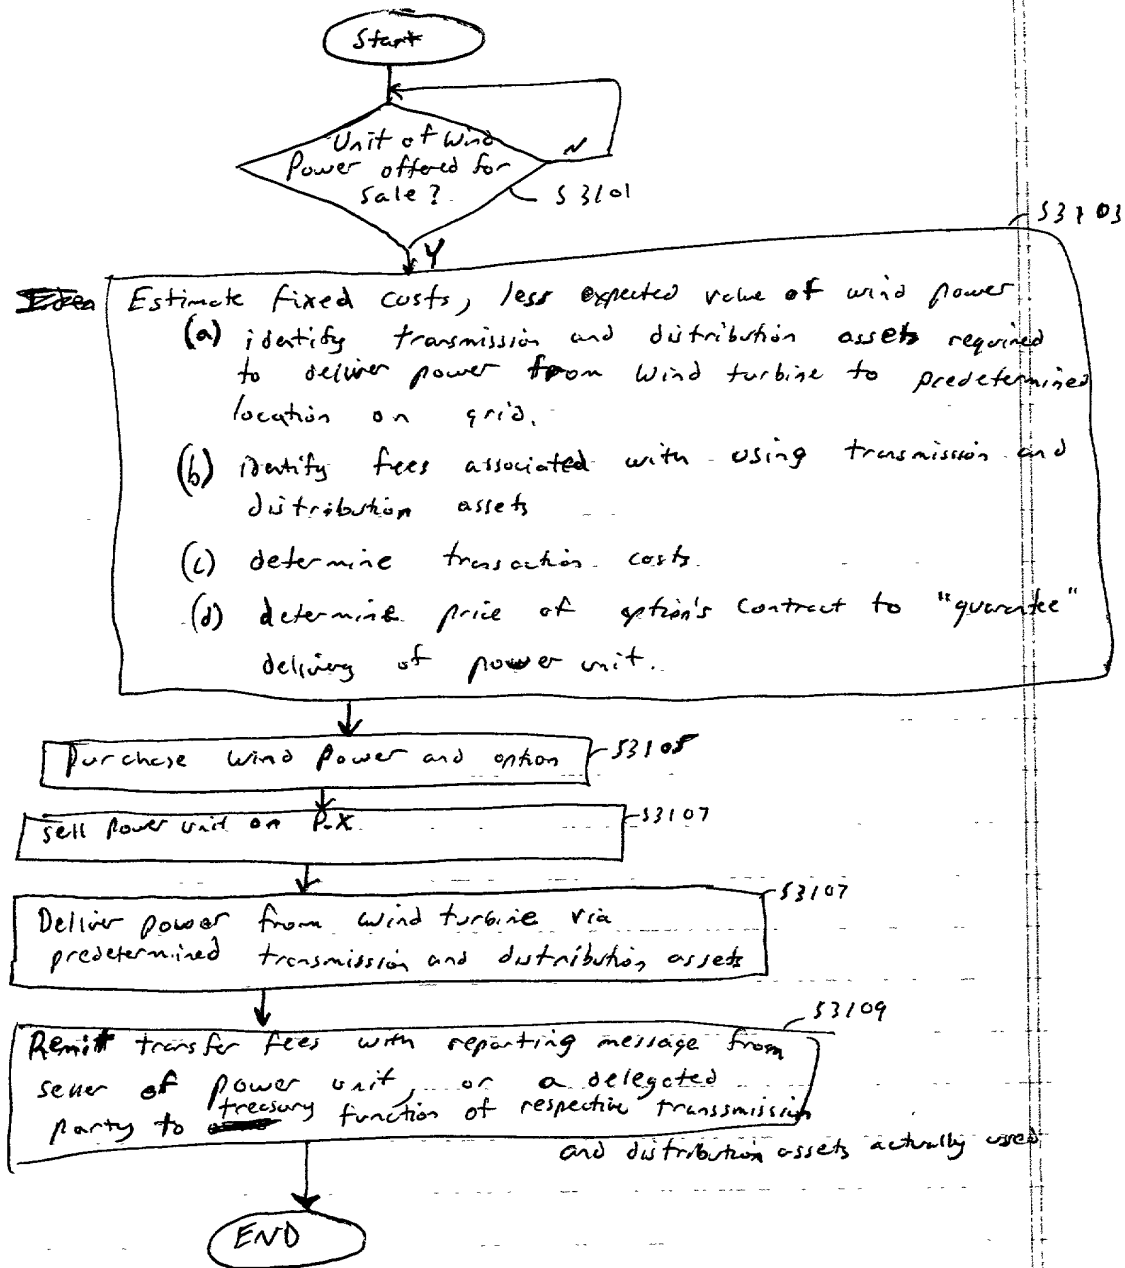 Start
Unit of Wind
Power offered for
sale?
N
S3101
S3103
Y
Estimate fixed costs, less expected value of wind power
(a) identify transmission and distribution assets required
to deliver power from wind turbine to predetermined
location on grid.
(b) identify fees associated with using transmission and
distribution assets
(c) determine transaction costs
(d) determine price of option's contract to "guarantee"
delivery of power unit.
Purchase Wind Power and option
S3105
sell power unit on P-X
S3107
S3107
Deliver power from wind turbine via
predetermined transmission and distribution assets
S3109
Remit transfer fees with reporting message from
seller of power unit, or a delegated
party to treasury function of respective transsmission
and distribution assets actually used
END